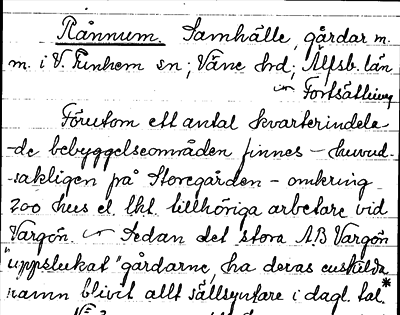 Rånnum. Samhälle, gårdar m.
m. i V. Tunhem sn; Väne hd; Älfsb. län
Fortsättning
Förutom ett antal kvarterindela-
-de bebyggelseområden finnes - huvud-
-sakligen på Storegården - omkring
200 hus el. lht. tillhöriga arbetare vid
Vargön. Sedan det stora AB Vargön
"uppslukat" gårdarne, ha deras enskilda
namn blivit allt sällsyntare i dagl. tal.*